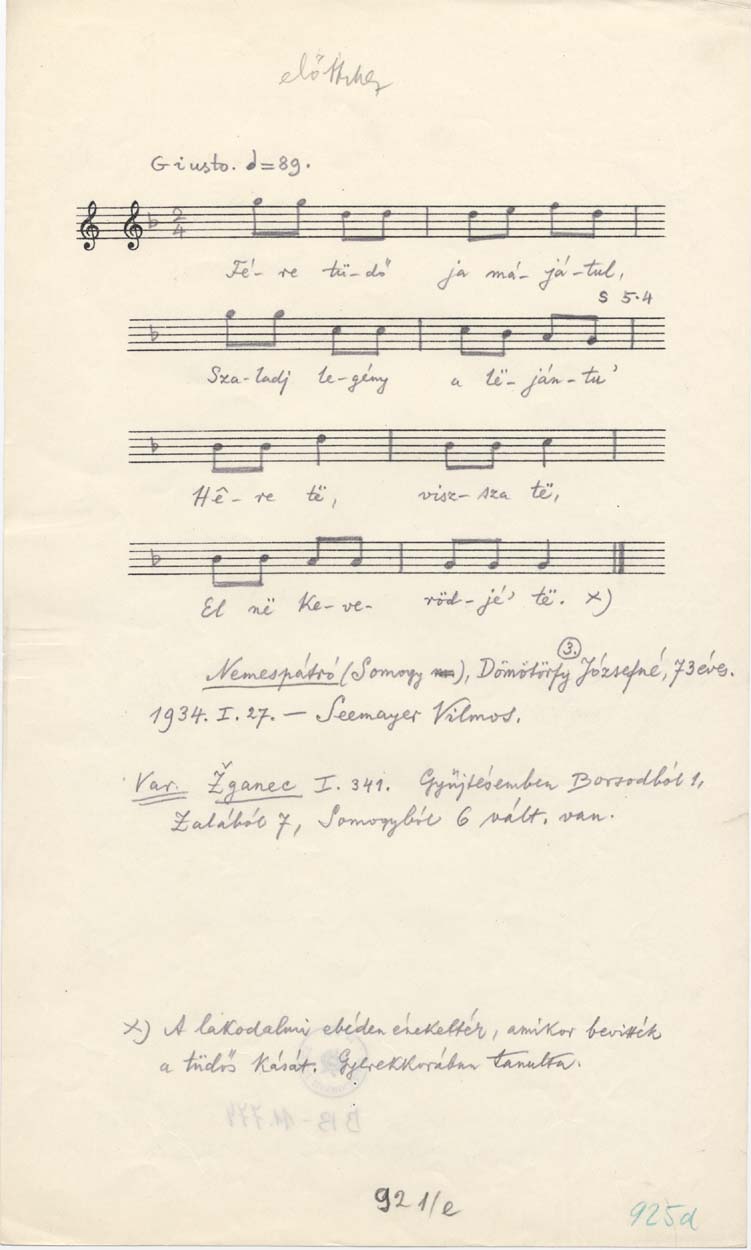 előttihez
Giusto. d=89.
2
4
Fé- re tü-dő ja má- já-tul,
s 5.4
Sza-ladj le-gény a lë- ján-tu'
Hê- re të, visz- sza të,
El në Ke-ve- röd-jé' të. x)
3.
Nemespátró (Somogy), Dömötörfy Józsefné, 73 éves.
1934. I. 27. — Seemayer Vilmos.
Var. Žganec I. 341. Gyűjtésemben Borsodból 1,
Zalából 7, Somogyból 6 vált. van.
x) A lakodalmi ebéden énekelték, amikor bevitték
a tüdős kását. Gyerekkorában tanulta.
B 13-11.774
92 1/e
925d